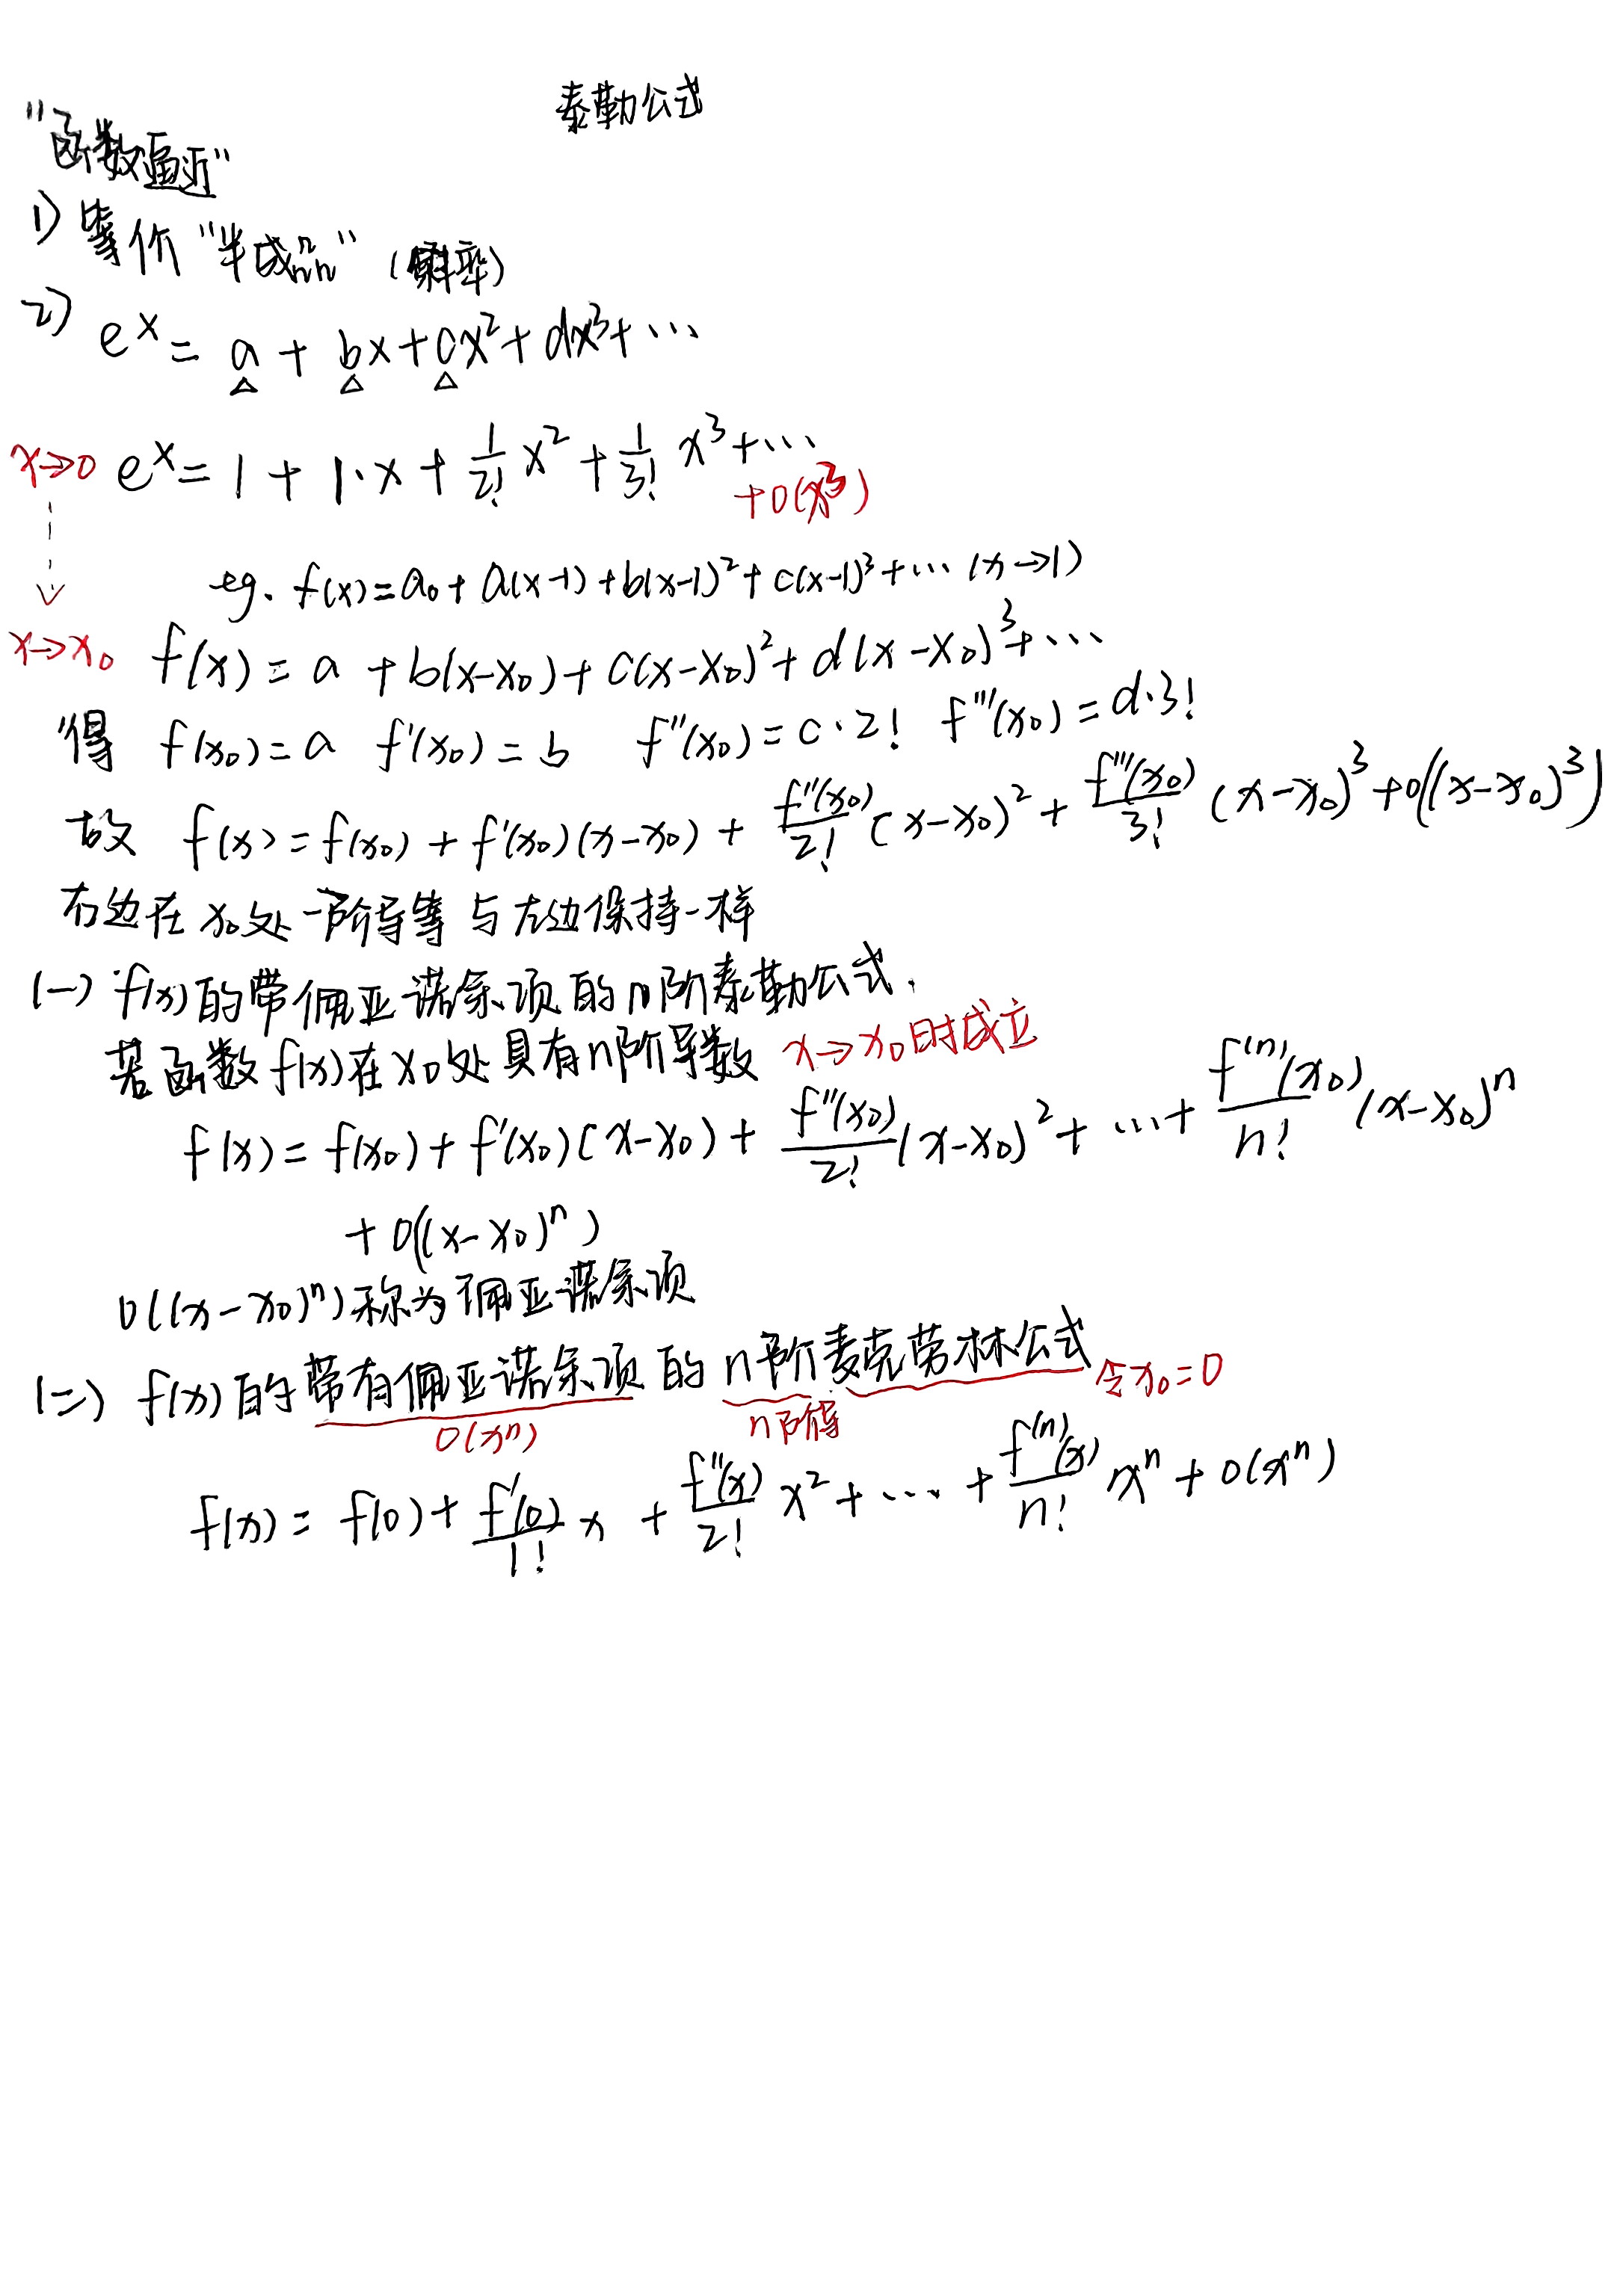 泰勒公式
"函数逼近"
1) 等价 "半成品" (斜率)
2) eˣ = a + bx + cx² + dx³ + …
x→0 eˣ = 1 + 1·x + \frac{1}{2!} x² + \frac{1}{3!} x³ + …
+o(x³)
eg. f(x) = a₀ + a(x-1) + b(x-1)² + c(x-1)³ + … (x→1)
x→x₀ f(x) = a + b(x-x₀) + c(x-x₀)² + d(x-x₀)³ + …
得 f(x₀) = a f'(x₀) = b f''(x₀) = c·2! f'''(x₀) = d·3!
故 f(x) = f(x₀) + f'(x₀)(x-x₀) + \frac{f''(x₀)}{2!}(x-x₀)² + \frac{f'''(x₀)}{3!}(x-x₀)³ + o((x-x₀)³)
右边在 x₀处一阶导等 与左边保持一样
(一) f(x)的带佩亚诺余项的n阶泰勒公式.
若函数f(x)在x₀处具有n阶导数 x→x₀时成立
f(x) = f(x₀) + f'(x₀)(x-x₀) + \frac{f''(x₀)}{2!}(x-x₀)² + … + \frac{f⁽ⁿ⁾(x₀)}{n!}(x-x₀)ⁿ
+ o((x-x₀)ⁿ)
o((x-x₀)ⁿ)称为佩亚诺余项
(二) f(x)的带有佩亚诺余项的n阶麦克劳林公式 令x₀=0
o(xⁿ) n阶导
f(x) = f(0) + \frac{f'(0)}{1!} x + \frac{f''(x)}{2!} x² + … + \frac{f⁽ⁿ⁾(x)}{n!} xⁿ + o(xⁿ)